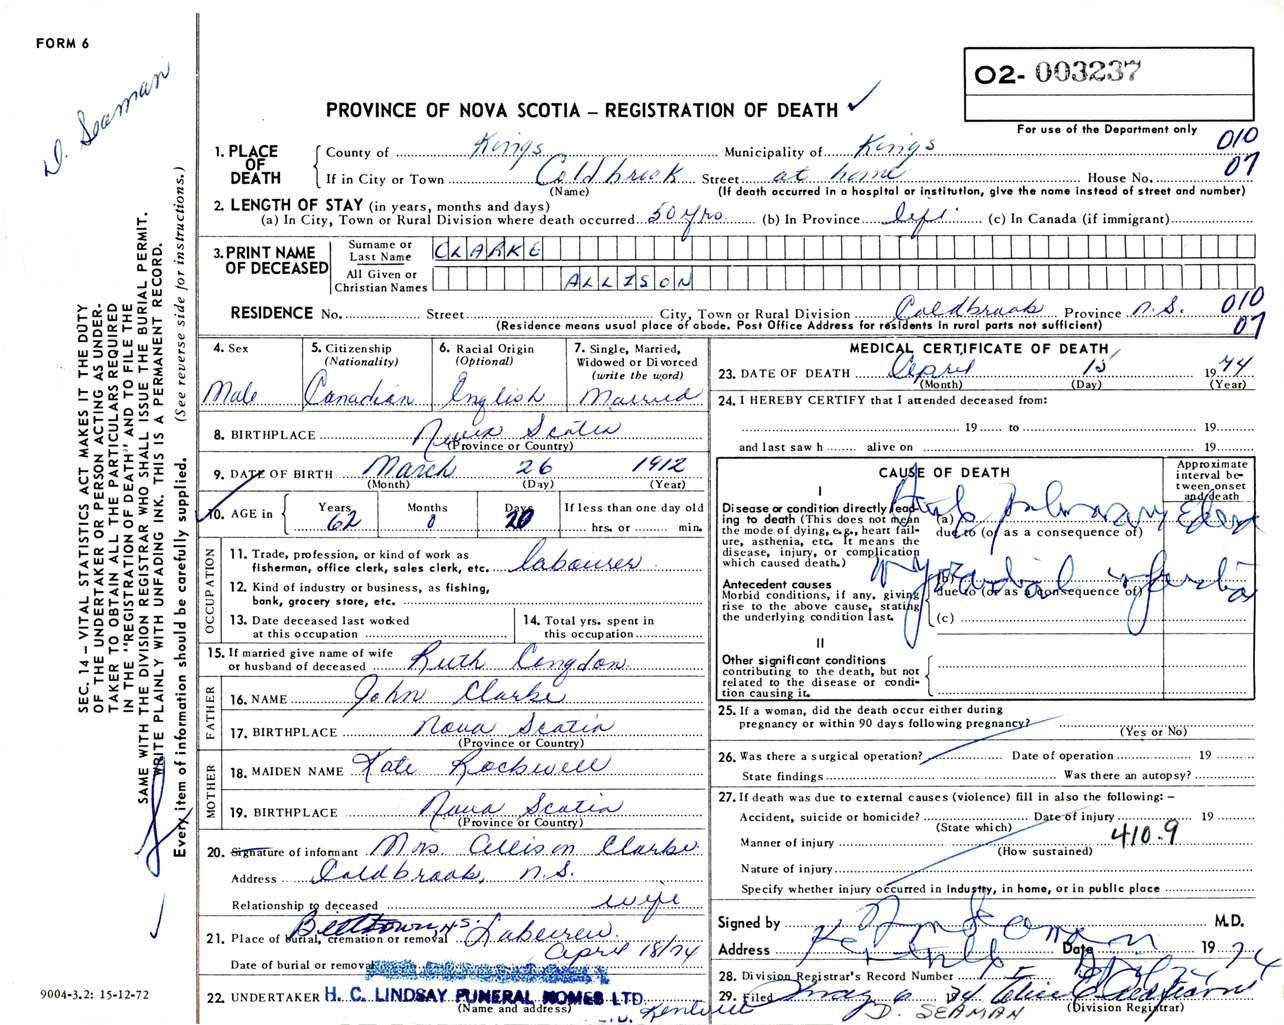 FORM 6
D. Seaman
O2- 003237
PROVINCE OF NOVA SCOTIA – REGISTRATION OF DEATH ✓
For use of the Department only
010
07
1. PLACE OF DEATH
County of Kings Municipality of Kings
If in City or Town Coldbrook Street at home House No.
(Name) (If death occurred in a hospital or institution, give the name instead of street and number)
2. LENGTH OF STAY (in years, months and days)
(a) In City, Town or Rural Division where death occurred 50 yrs (b) In Province life (c) In Canada (if immigrant)
3. PRINT NAME OF DECEASED
Surname or Last Name CLARKE
All Given or Christian Names ALLISON
RESIDENCE No. Street City, Town or Rural Division Coldbrook Province N.S. 010
(Residence means usual place of abode. Post Office Address for residents in rural parts not sufficient) 07
4. Sex
Male
5. Citizenship
(Nationality)
Canadian
6. Racial Origin
(Optional)
English
7. Single, Married,
Widowed or Divorced
(write the word)
Married
8. BIRTHPLACE Nova Scotia
(Province or Country)
9. DATE OF BIRTH March 26 1912
(Month) (Day) (Year)
10. AGE in Years 62 Months 0 Days 20 If less than one day old
hrs. or min.
OCCUPATION
11. Trade, profession, or kind of work as
fisherman, office clerk, sales clerk, etc. labourer
12. Kind of industry or business, as fishing,
bank, grocery store, etc.
13. Date deceased last worked
at this occupation
14. Total yrs. spent in
this occupation
15. If married give name of wife
or husband of deceased Ruth Congdon
FATHER
16. NAME John Clarke
17. BIRTHPLACE Nova Scotia
(Province or Country)
MOTHER
18. MAIDEN NAME Kate Rockwell
19. BIRTHPLACE Nova Scotia
(Province or Country)
20. Signature of informant Mrs. Allison Clarke
Address Coldbrook, N.S.
Relationship to deceased wife
21. Place of burial, cremation or removal Lakeview
Date of burial or removal April 18/74
22. UNDERTAKER H. C. LINDSAY FUNERAL HOMES LTD.
(Name and address)
Kentville
MEDICAL CERTIFICATE OF DEATH
23. DATE OF DEATH April 15 1974
(Month) (Day) (Year)
24. I HEREBY CERTIFY that I attended deceased from:
19 to 19
and last saw h alive on 19
CAUSE OF DEATH
Approximate
interval be-
tween onset
and death
I
Disease or condition directly lead-
ing to death (This does not mean
the mode of dying, e.g., heart fail-
ure, asthenia, etc. It means the
disease, injury, or complication
which caused death.)
(a) Acute Pulmonary Edema
due to (or as a consequence of)
Antecedent causes
Morbid conditions, if any, giving
rise to the above cause, stating
the underlying condition last.
(b) Myocardial infarction
due to (or as a consequence of)
(c)
II
Other significant conditions
contributing to the death, but not
related to the disease or condi-
tion causing it.
25. If a woman, did the death occur either during
pregnancy or within 90 days following pregnancy?
(Yes or No)
26. Was there a surgical operation? Date of operation 19
State findings Was there an autopsy?
27. If death was due to external causes (violence) fill in also the following: –
Accident, suicide or homicide? Date of injury 19
(State which)
Manner of injury 410.9
(How sustained)
Nature of injury
Specify whether injury occurred in Industry, in home, or in public place
Signed by M.D.
Address Kentville Date 1974
28. Division Registrar's Record Number
29. Filed May 6 1974
(Division Registrar)
D. SEAMAN
SEC. 14 – VITAL STATISTICS ACT MAKES IT THE DUTY
OF THE UNDERTAKER OR PERSON ACTING AS UNDER-
TAKER TO OBTAIN ALL THE PARTICULARS REQUIRED
IN THE "REGISTRATION OF DEATH" AND TO FILE THE
SAME WITH THE DIVISION REGISTRAR WHO SHALL ISSUE THE BURIAL PERMIT.
WRITE PLAINLY WITH UNFADING INK. THIS IS A PERMANENT RECORD.
Every item of information should be carefully supplied. (See reverse side for instructions.)
9004-3.2: 15-12-72